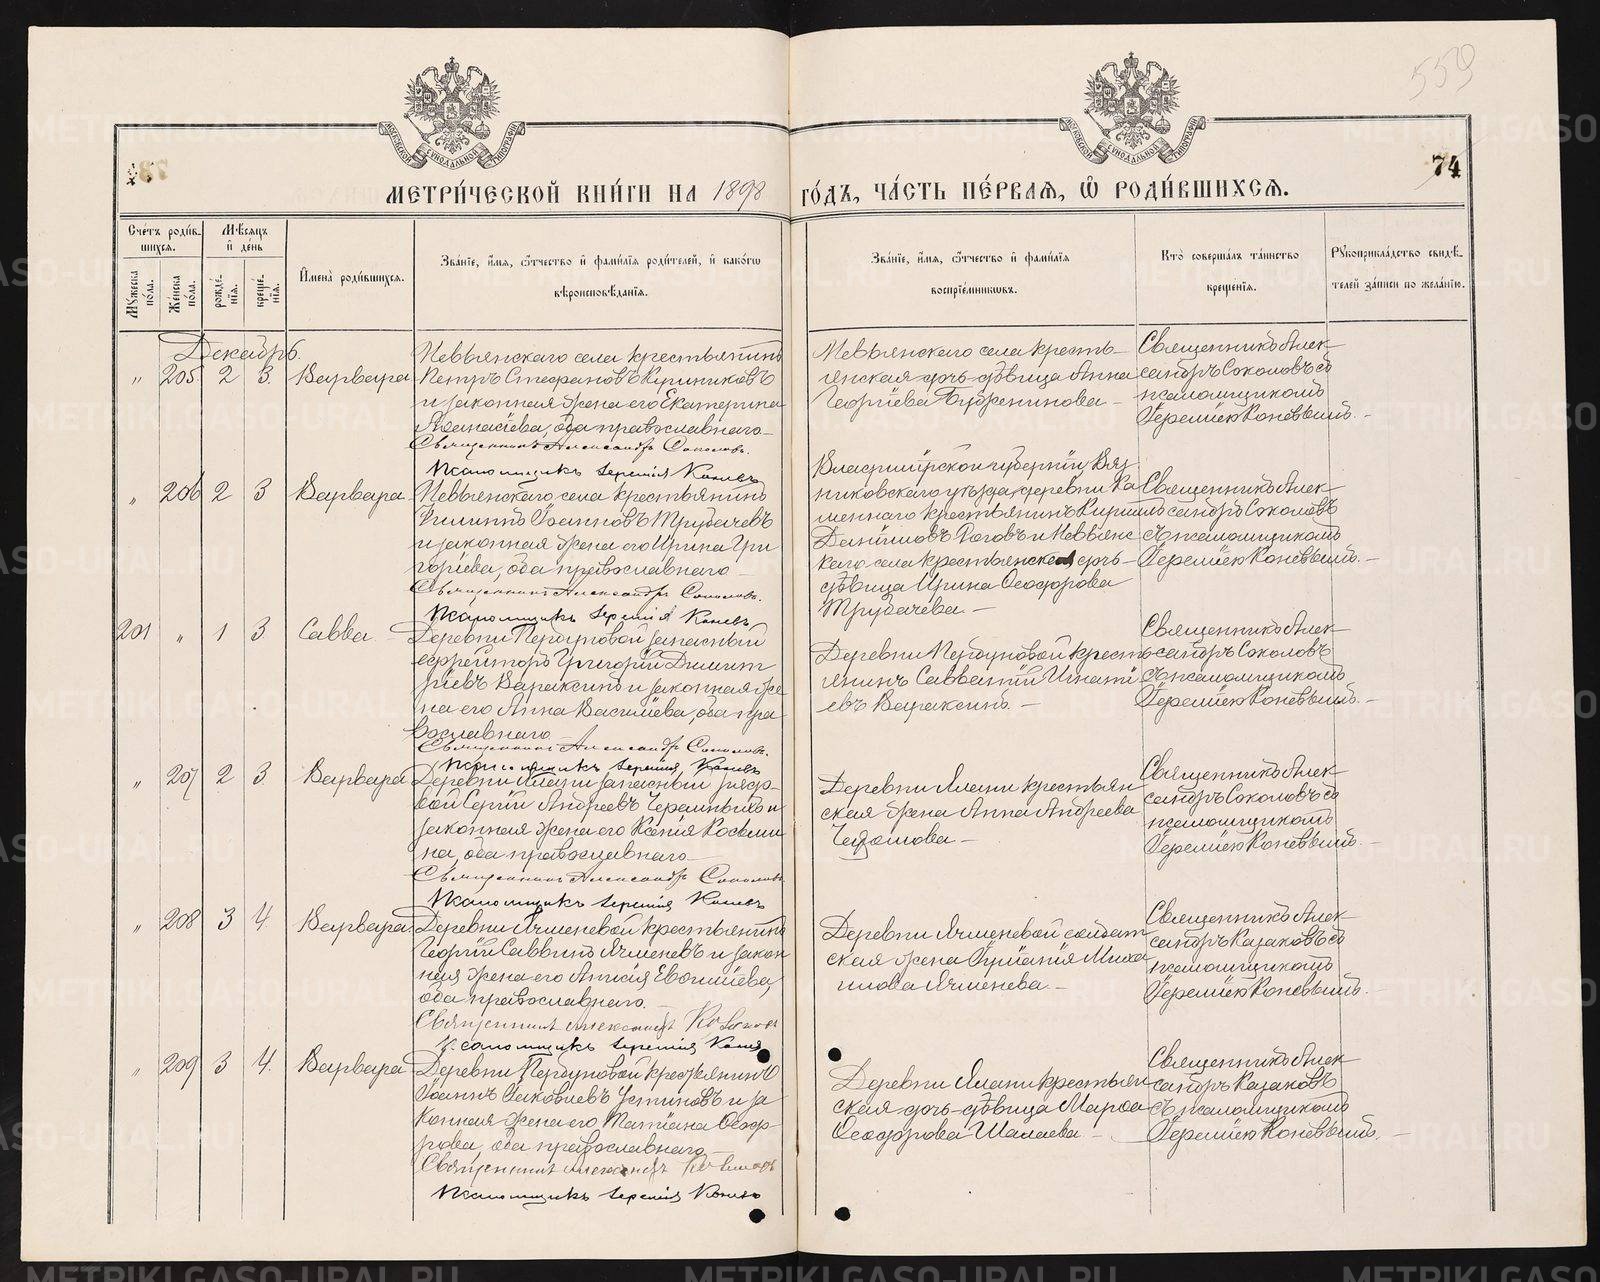 559
74
МОСКОВСКОЙ СѴНОДАЛЬНОЙ ТИПОГРАФІИ
МОСКОВСКОЙ СѴНОДАЛЬНОЙ ТИПОГРАФІИ
МЕТРИ́ЧЕСКОЙ КНИ́ГИ НА 1898 ГО́ДЪ, ЧА́СТЬ ПЕ́РВАѦ, Ѡ РОДИ́ВШИХСѦ.
Сче́тъ роди́в-
шихсѧ.
Мѣ́сѧцъ
и҆ де́нь
Мꙋ́жеска по́ла.
Же́нска по́ла.
рожде́-
нїѧ.
креще́-
нїѧ.
И҆мена̀ роди́вшихсѧ.
Зва́нїе, и҆́мѧ, ѻ҆́тчество и҆ фами́лїѧ роди́телей, и҆ како́гѡ
вѣроисповѣ́данїѧ.
Зва́нїе, и҆́мѧ, ѻ҆́тчество и҆ фами́лїѧ
воспрїе́мникѡвъ.
Кто̀ соверша́лъ та́инство
креще́нїѧ.
Рꙋкоприкла́дство свидѣ́-
телей за́писи по жела́нїю.
Декабрь.
„ 205 2 3. Варвара
Невьянскаго села крестьянинъ
Петръ Стефановъ Куриниковъ
и законная жена его Екатерина
Афанасіева, оба православнаго
Священникъ Александръ Соколовъ.
Псаломщикъ Іеремія Коневъ
Невьянскаго села кресть-
янская дочь-дѣвица Анна
Георгіева
Священникъ Алек-
сандръ Соколовъ съ
псаломщикомъ
Іереміею Коневымъ.
„ 206 2 3 Варвара
Невьянскаго села крестьянинъ
Филиппъ Іоанновъ Трубачевъ
и законная жена его Ирина Гри
горіева, оба православнаго
Священникъ Александръ Соколовъ.
Псаломщикъ Іеремія Коневъ
Владимірской губерніи Вяз
никовскаго уѣзда, деревни Ка
меннаго крестьянинъ Кириллъ
Даніиловъ Роговъ и Невьянс
каго села крестьянская дочь-
дѣвица Ирина Ѳеодорова
Трубачева —
Священникъ Алек-
сандръ Соколовъ
съ псаломщикомъ
Іереміею Коневымъ. —
201 „ 1 3 Савва
Деревни Першуновой запасный
ефрейторъ Григорій Димит
ріевъ Вараксинъ и законная же
на его Анна Василіева, оба пра
вославнаго
Священникъ Александръ Соколовъ.
Псаломщикъ Іеремія Коневъ
Деревни Першуновой кресть
янинъ Савватій Игнаті
евъ Вараксинъ. —
Священникъ Алек-
сандръ Соколовъ
съ псаломщикомъ
Іереміею Коневымъ. —
„ 207 2 3 Варвара
Деревни Ялани запасный рядо-
вой Сергій Андреевъ Черемныхъ и
законная жена его Ксенія Косьми
на, оба православнаго
Священникъ Александръ Соколовъ
Псаломщикъ Іеремія Коневъ
Деревни Ялани крестьян
ская жена Анна Андреева
Священникъ Алек-
сандръ Соколовъ съ
псаломщикомъ
Іереміею Коневымъ. —
„ 208 3 4. Варвара
Деревни Ячменевой крестьянинъ
Георгій Саввинъ Ячменевъ и закон
ная жена его Анисія Евѳиміева,
оба православнаго. —
Священникъ Александръ Казаковъ
Псаломщикъ Іеремія Коневъ
Деревни Ячменевой солдат
ская жена Іуліанія Миха
илова Ячменева —
Священникъ Алек-
сандръ Казаковъ съ
псаломщикомъ
Іереміею Коневымъ. —
„ 209 3 4. Варвара
Деревни Першуновой крестьянинъ
Іоаннъ Іаковлевъ Устиновъ и за
конная жена его Татіана Ѳеодо-
рова, оба православнаго
Священникъ Александръ Казаковъ
Псаломщикъ Іеремія Коневъ
Деревни Ялани крестьян
ская дочь-дѣвица Марѳа
Ѳеодорова Шалаева —
Священникъ Алек-
сандръ Казаковъ
съ псаломщикомъ
Іереміею Коневымъ. —
METRIKI.GASO-URAL.RU